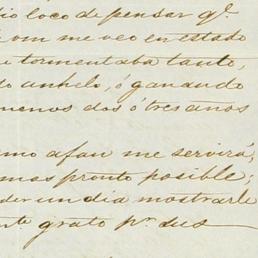 dio loco de pensar qe.
om me veo en estado
e tormentaba tanto,
do anhelo, ó ganando
menos dos ó tres años
mo afan me servirá,
mas pronto posible;
der un dia mostrarle
nte grato pr. sus